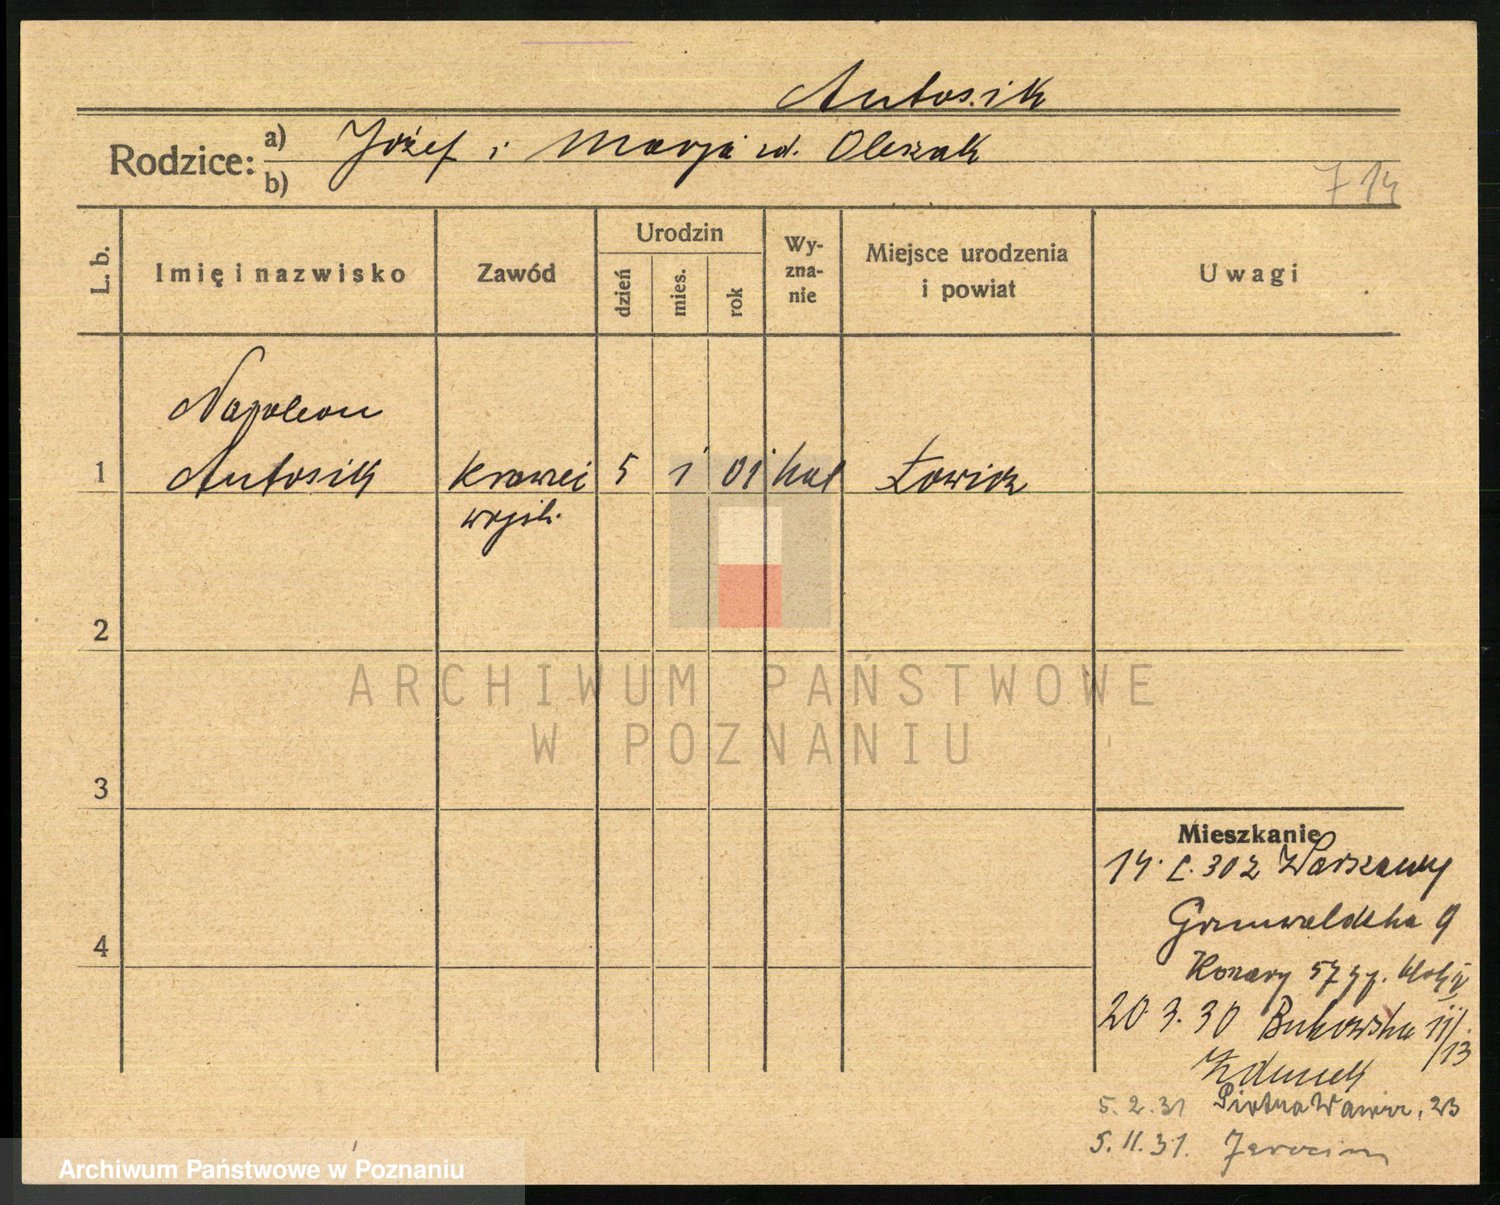 Antosik
Rodzice: a) Józef i Marja zd. Olszak
b)
714
L. b.
Imię i nazwisko
Zawód
Urodzin
dzień
mies.
rok
Wy-
zna-
nie
Miejsce urodzenia
i powiat
Uwagi
Napoleon
1 Antosik krawiec 5 1 01 kat Łowicz
wojsk.
2
ARCHIWUM PAŃSTWOWE
W POZNANIU
3
Mieszkanie
30 z Warszawy
Grunwaldzka 9
4
Koszary 57
20.3.30 Bukowska 11/13
5.2.31 Piotra Wawrz. 23
5.11.31. Jarocin
Archiwum Państwowe w Poznaniu